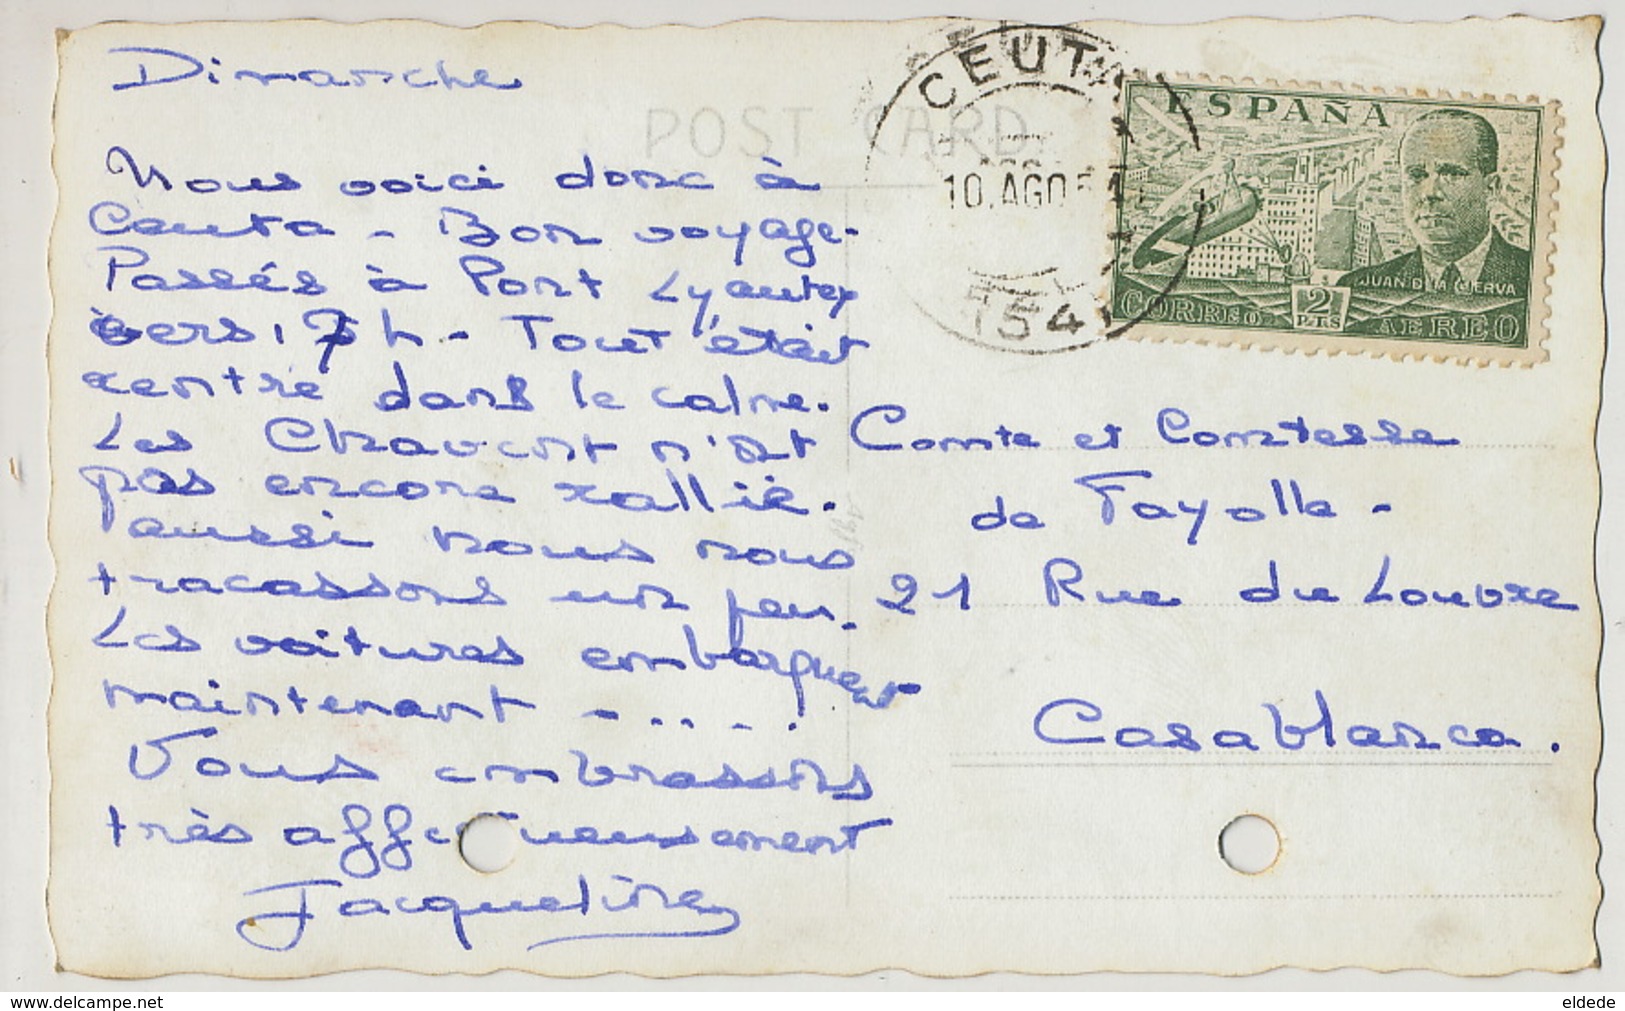 Dimanche
Nous voici donc à
Ceuta - Bon voyage.
Passés à Port Lyautey
vers 17 h - Tout était
rentré dans le calme.
Les n'ont
pas encore rallié.
aussi nous nous
tracassons un peu.
Les voitures embarquent
maintenant - . . - .
Vous embrassons
très affectueusement
Jacqueline
POST CARD
CEUTA
10.AGO 54
ESPAÑA
JUAN D LA CIERVA
2
PTS
CORREO AEREO
Comte et Comtesse
de Fayolle -
21 Rue du Louvre
Casablanca.
www.delcampe.net
eldede